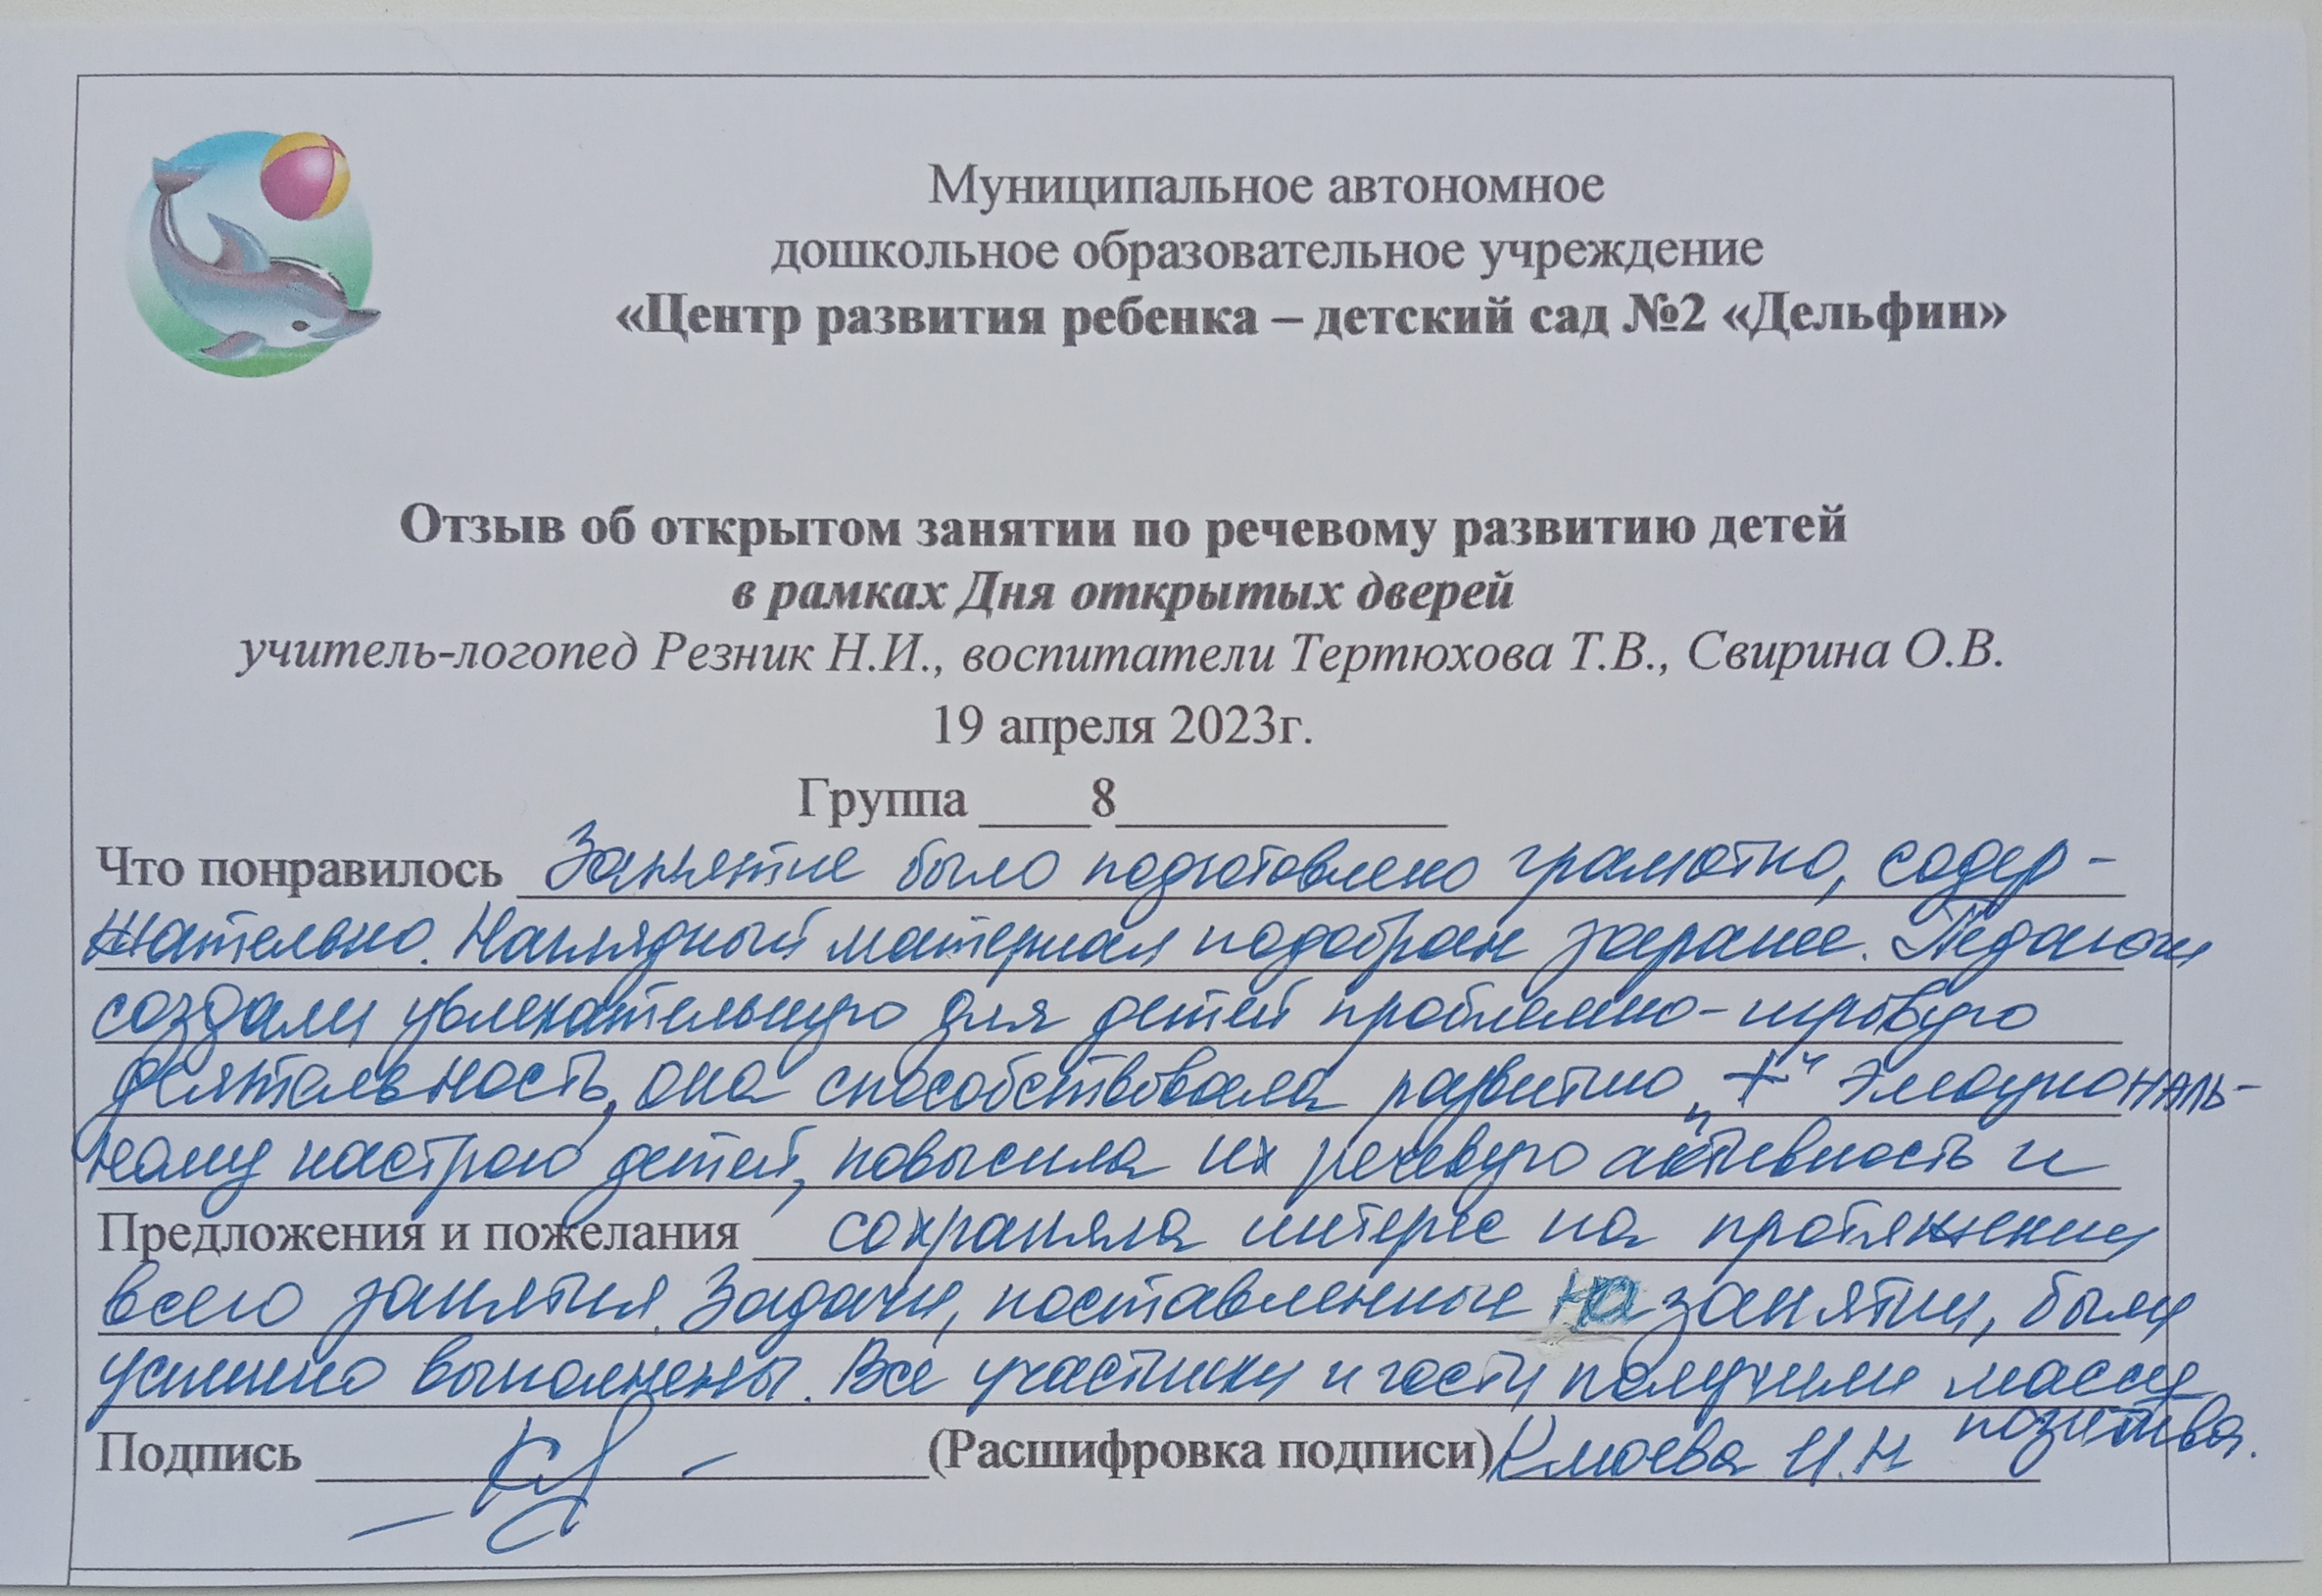 Муниципальное автономное
дошкольное образовательное учреждение
«Центр развития ребенка – детский сад №2 «Дельфин»
Отзыв об открытом занятии по речевому развитию детей
в рамках Дня открытых дверей
учитель-логопед Резник Н.И., воспитатели Тертюхова Т.В., Свирина О.В.
19 апреля 2023г.
Группа ____8____________
Что понравилось Занятие было подготовлено грамотно, содер-
жательно. Наглядный материал подобран заранее. Педагоги
создали увлекательную для детей проблемно-игровую
деятельность, она способствовала развитию „+“ эмоциональ-
ному настрою детей, повысила их речевую активность и
Предложения и пожелания сохраняла интерес на протяжении
всего занятия. Задачи, поставленные на занятии, были
успешно выполнены. Все участники и гости получили массу
позитива.
Подпись (Расшифровка подписи) И.Н